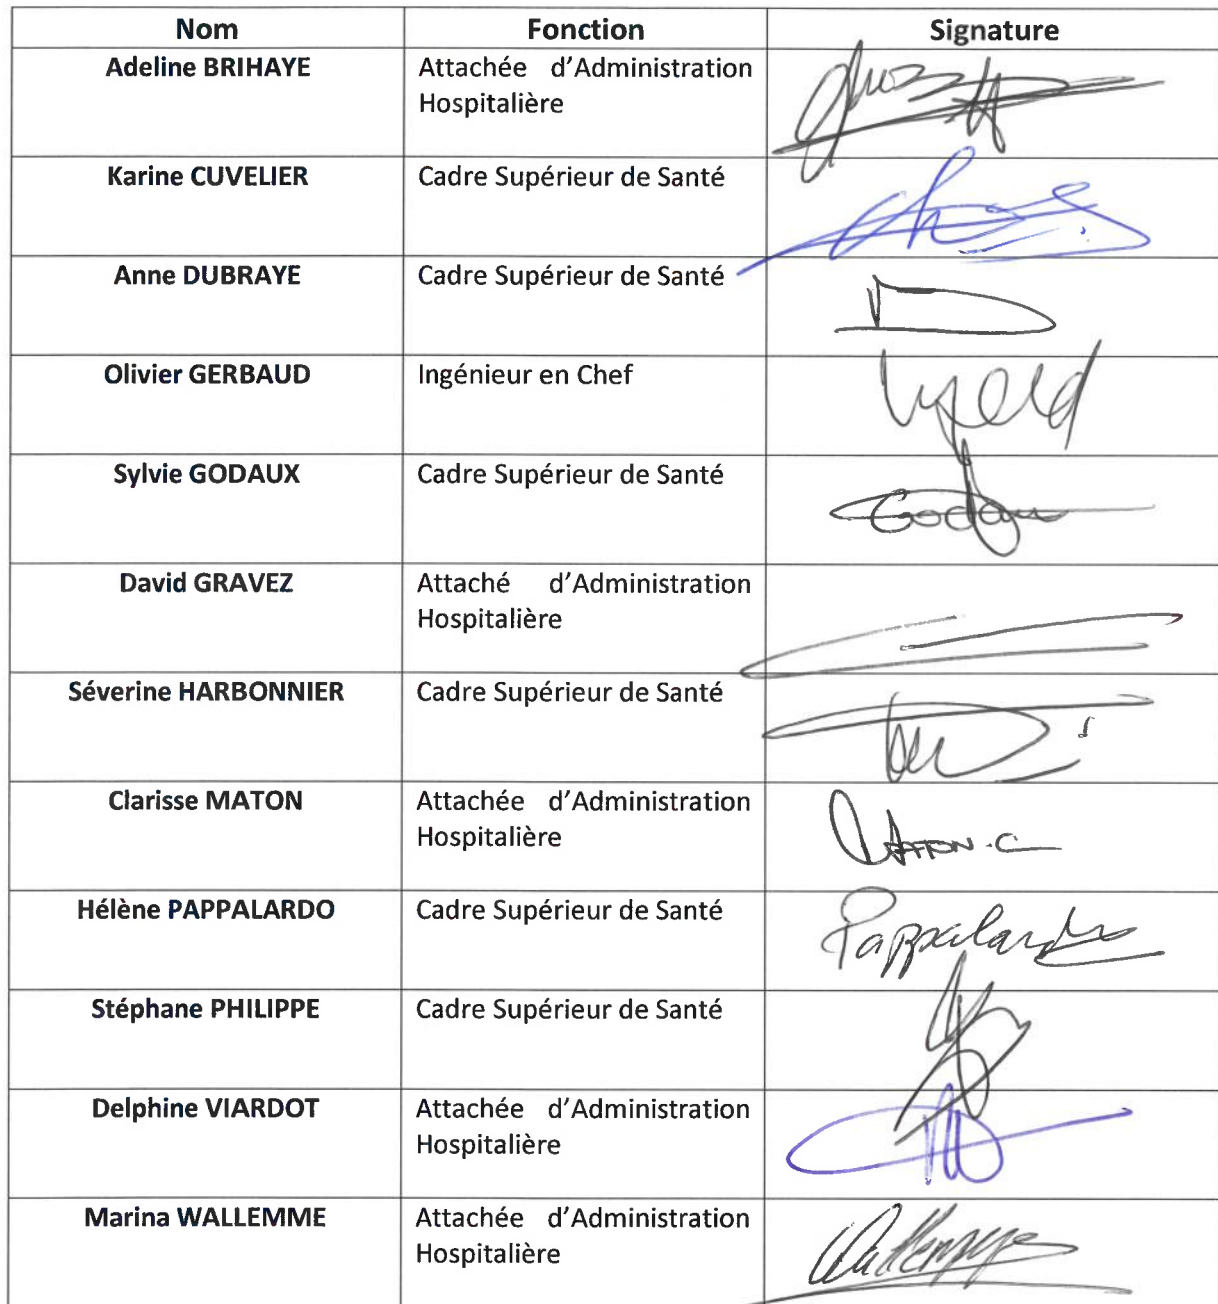 Nom Fonction Signature
Adeline BRIHAYE Attachée d'Administration
Hospitalière
Karine CUVELIER Cadre Supérieur de Santé
Anne DUBRAYE Cadre Supérieur de Santé
Olivier GERBAUD Ingénieur en Chef
Sylvie GODAUX Cadre Supérieur de Santé
Godaux
David GRAVEZ Attaché d'Administration
Hospitalière
Séverine HARBONNIER Cadre Supérieur de Santé
Clarisse MATON Attachée d'Administration
Hospitalière
MATON.C
Hélène PAPPALARDO Cadre Supérieur de Santé
Pappalardo
Stéphane PHILIPPE Cadre Supérieur de Santé
Delphine VIARDOT Attachée d'Administration
Hospitalière
Marina WALLEMME Attachée d'Administration
Hospitalière